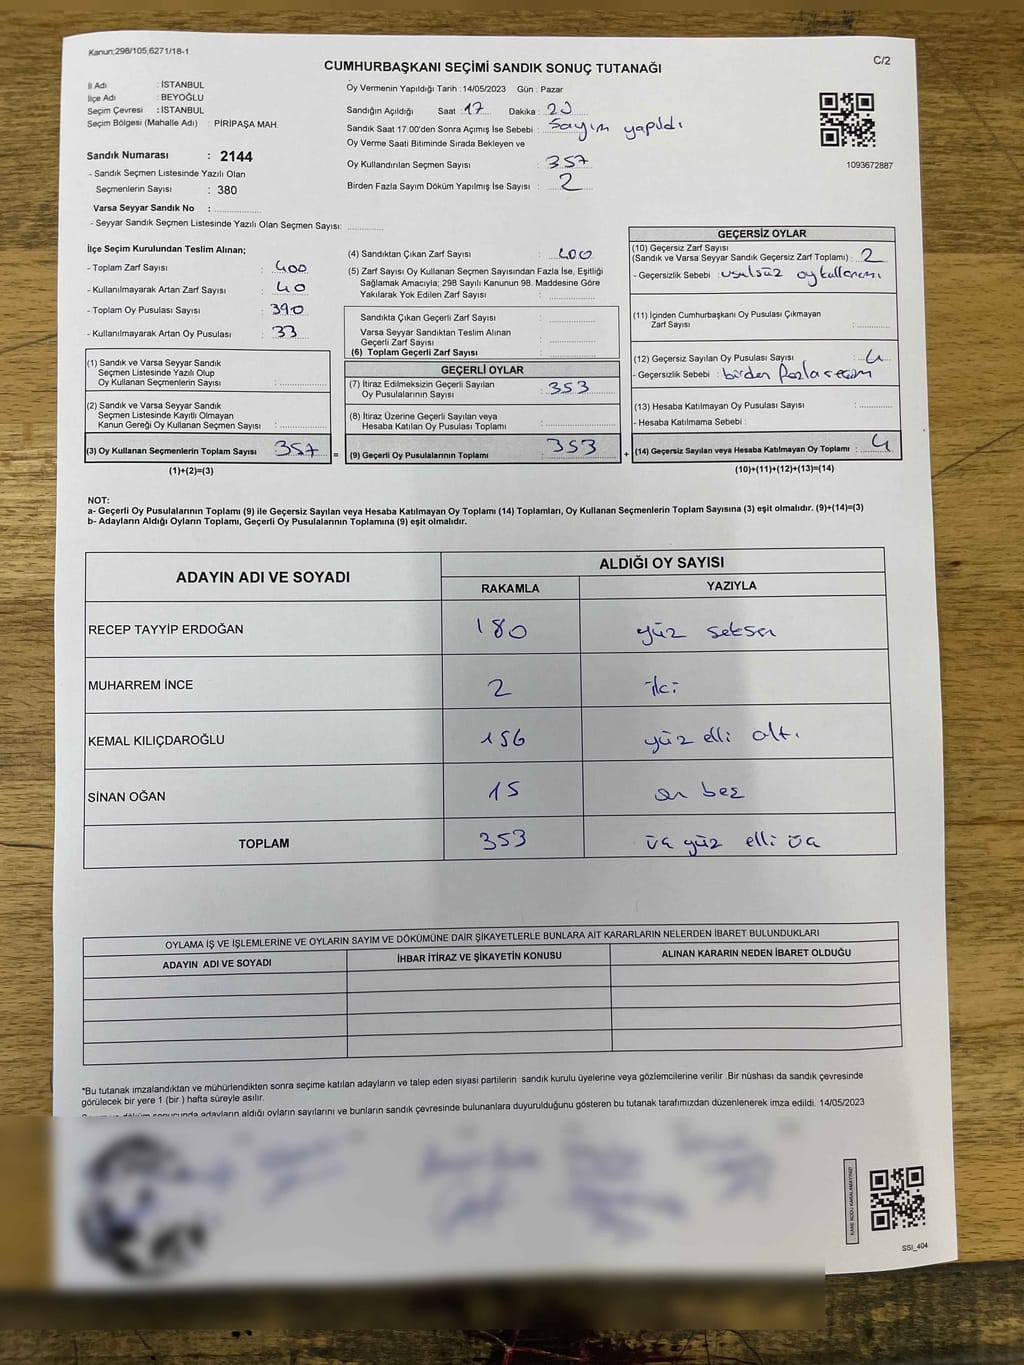 Kanun;298/105,6271/18-1
C/2
CUMHURBAŞKANI SEÇİMİ SANDIK SONUÇ TUTANAĞI
İl Adı : İSTANBUL
İlçe Adı : BEYOĞLU
Seçim Çevresi : İSTANBUL
Seçim Bölgesi (Mahalle Adı) : PİRİPAŞA MAH.
Sandık Numarası : 2144
- Sandık Seçmen Listesinde Yazılı Olan
Seçmenlerin Sayısı : 380
Varsa Seyyar Sandık No :
- Seyyar Sandık Seçmen Listesinde Yazılı Olan Seçmen Sayısı:
Oy Vermenin Yapıldığı Tarih : 14/05/2023 Gün : Pazar
Sandığın Açıldığı Saat : 17 Dakika : 20
Sandık Saat 17:00'den Sonra Açımış İse Sebebi : Sayım yapıldı
Oy Verme Saati Bitiminde Sırada Bekleyen ve
Oy Kullandırılan Seçmen Sayısı : 357
Birden Fazla Sayım Döküm Yapılmış İse Sayısı : 2
1093672887
İlçe Seçim Kurulundan Teslim Alınan;
- Toplam Zarf Sayısı : 400
- Kullanılmayarak Artan Zarf Sayısı : 40
- Toplam Oy Pusulası Sayısı : 390
- Kullanılmayarak Artan Oy Pusulası : 33
(1) Sandık ve Varsa Seyyar Sandık
Seçmen Listesinde Yazılı Olup
Oy Kullanan Seçmenlerin Sayısı :
(2) Sandık ve Varsa Seyyar Sandık
Seçmen Listesinde Kayıtlı Olmayan
Kanun Gereği Oy Kullanan Seçmen Sayısı :
(3) Oy Kullanan Seçmenlerin Toplam Sayısı 357
(1)+(2)=(3)
(4) Sandıktan Çıkan Zarf Sayısı : 400
(5) Zarf Sayısı Oy Kullanan Seçmen Sayısından Fazla İse, Eşitliği
Sağlamak Amacıyla; 298 Sayılı Kanunun 98. Maddesine Göre
Yakılarak Yok Edilen Zarf Sayısı :
Sandıkta Çıkan Geçerli Zarf Sayısı :
Varsa Seyyar Sandıktan Teslim Alınan
Geçerli Zarf Sayısı :
(6) Toplam Geçerli Zarf Sayısı :
GEÇERLİ OYLAR
(7) İtiraz Edilmeksizin Geçerli Sayılan
Oy Pusulalarının Sayısı : 353
(8) İtiraz Üzerine Geçerli Sayılan veya
Hesaba Katılan Oy Pusulası Toplamı :
= (9) Geçerli Oy Pusulalarının Toplamı : 353
GEÇERSİZ OYLAR
(10) Geçersiz Zarf Sayısı
(Sandık ve Varsa Seyyar Sandık Geçersiz Zarf Toplamı) : 2
- Geçersizlik Sebebi : usulsüz oy kullanımı
(11) İçinden Cumhurbaşkanı Oy Pusulası Çıkmayan
Zarf Sayısı :
(12) Geçersiz Sayılan Oy Pusulası Sayısı : 4
- Geçersizlik Sebebi : birden fazla seçim
(13) Hesaba Katılmayan Oy Pusulası Sayısı :
- Hesaba Katılmama Sebebi :
+ (14) Geçersiz Sayılan veya Hesaba Katılmayan Oy Toplamı : 4
(10)+(11)+(12)+(13)=(14)
NOT:
a- Geçerli Oy Pusulalarının Toplamı (9) ile Geçersiz Sayılan veya Hesaba Katılmayan Oy Toplamı (14) Toplamları, Oy Kullanan Seçmenlerin Toplam Sayısına (3) eşit olmalıdır. (9)+(14)=(3)
b- Adayların Aldığı Oyların Toplamı, Geçerli Oy Pusulalarının Toplamına (9) eşit olmalıdır.
ADAYIN ADI VE SOYADI
ALDIĞI OY SAYISI
RAKAMLA YAZIYLA
RECEP TAYYİP ERDOĞAN 180 yüz seksen
MUHARREM İNCE 2 iki
KEMAL KILIÇDAROĞLU 156 yüz elli altı
SİNAN OĞAN 15 on beş
TOPLAM 353 üç yüz elli üç
OYLAMA İŞ VE İŞLEMLERİNE VE OYLARIN SAYIM VE DÖKÜMÜNE DAİR ŞİKAYETLERLE BUNLARA AİT KARARLARIN NELERDEN İBARET BULUNDUKLARI
ADAYIN ADI VE SOYADI İHBAR İTİRAZ VE ŞİKAYETİN KONUSU ALINAN KARARIN NEDEN İBARET OLDUĞU
*Bu tutanak imzalandıktan ve mühürlendikten sonra seçime katılan adayların ve talep eden siyasi partilerin sandık kurulu üyelerine veya gözlemcilerine verilir .Bir nüshası da sandık çevresinde
görülecek bir yere 1 (bir ) hafta süreyle asılır.
sonucunda adayların aldığı oyların sayılarını ve bunların sandık çevresinde bulunanlara duyurulduğunu gösteren bu tutanak tarafımızdan düzenlenerek imza edildi. 14/05/2023
SSI_404